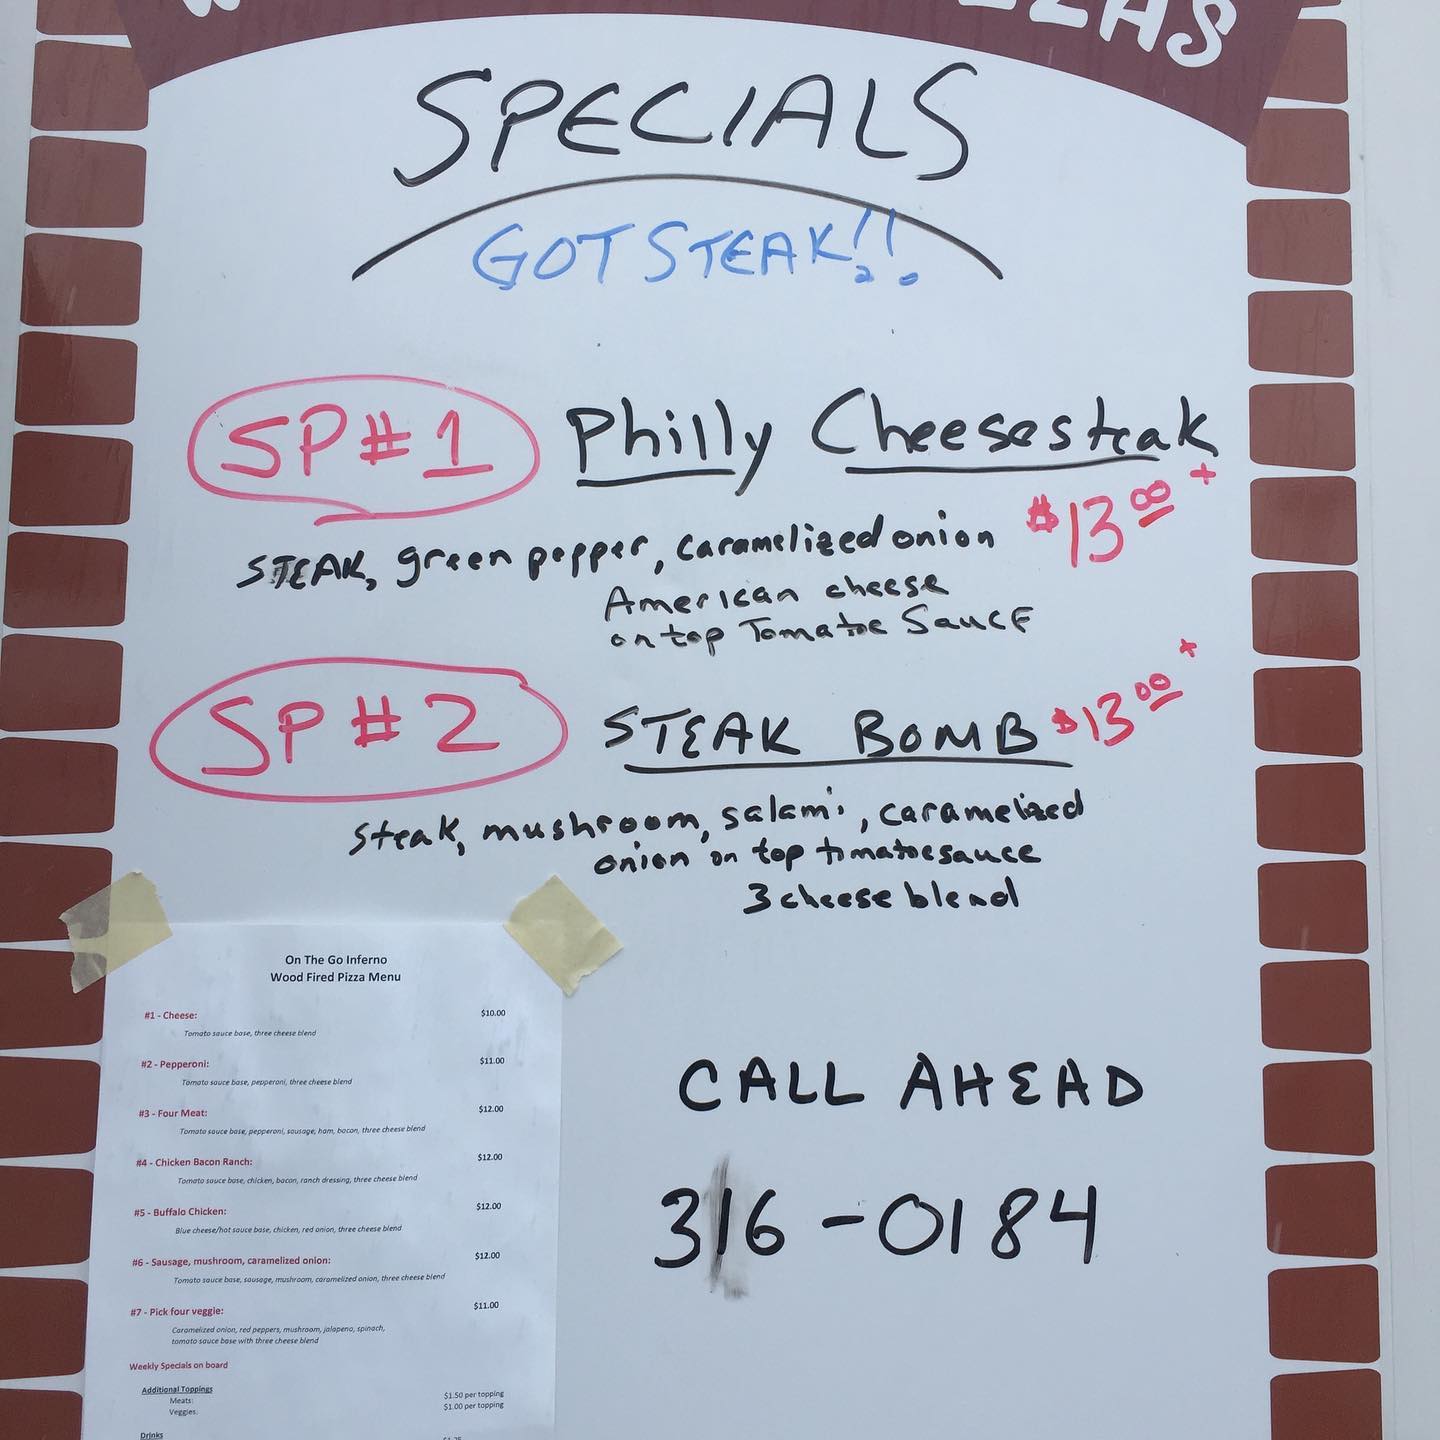 SPECIALS
GOT STEAK!!
SP#1 Philly Cheesesteak
$13.00 +
STEAK, green pepper, caramelized onion
American cheese
on top Tomatoe Sauce
SP#2 STEAK BOMB $13.00 *
steak, mushroom, salami, caramelized
onion on top tomatoe sauce
3 cheese blend
On The Go Inferno
Wood Fired Pizza Menu
#1 - Cheese: $10.00
Tomato sauce base, three cheese blend
#2 - Pepperoni: $11.00
Tomato sauce base, pepperoni, three cheese blend
#3 - Four Meat: $12.00
Tomato sauce base, pepperoni, sausage, ham, bacon, three cheese blend
#4 - Chicken Bacon Ranch: $12.00
Tomato sauce base, chicken, bacon, ranch dressing, three cheese blend
#5 - Buffalo Chicken: $12.00
Blue cheese/hot sauce base, chicken, red onion, three cheese blend
#6 - Sausage, mushroom, caramelized onion: $12.00
Tomato sauce base, sausage, mushroom, caramelized onion, three cheese blend
#7 - Pick four veggie: $11.00
Caramelized onion, red peppers, mushroom, jalapeno, spinach,
tomato sauce base with three cheese blend
Weekly Specials on board
Additional Toppings
Meats: $1.50 per topping
Veggies. $1.00 per topping
Drinks
CALL AHEAD
316-0184